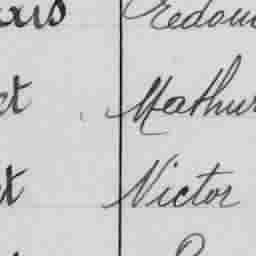 ois Edoua
ct Mathur
t Victor